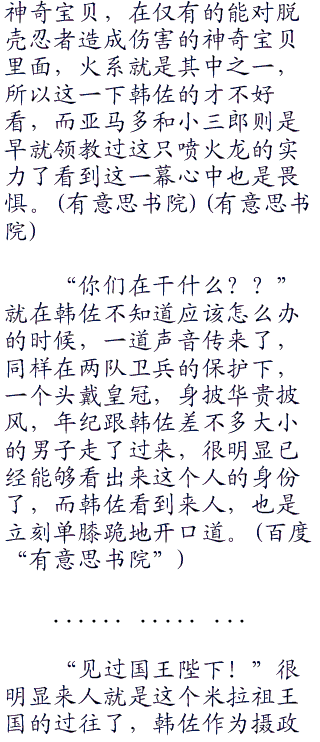 神奇宝贝，在仅有的能对脱
壳忍者造成伤害的神奇宝贝
里面，火系就是其中之一，
所以这一下韩佐的才不好
看，而亚马多和小三郎则是
早就领教过这只喷火龙的实
力了看到这一幕心中也是畏
惧。(有意思书院)(有意思书
院)
“你们在干什么？？”
就在韩佐不知道应该怎么办
的时候，一道声音传来了，
同样在两队卫兵的保护下，
一个头戴皇冠，身披华贵披
风，年纪跟韩佐差不多大小
的男子走了过来，很明显已
经能够看出来这个人的身份
了，而韩佐看到来人，也是
立刻单膝跪地开口道。(百度
“有意思书院”)
...... ..... ...
“见过国王陛下！”很
明显来人就是这个米拉祖王
国的过往了，韩佐作为摄政